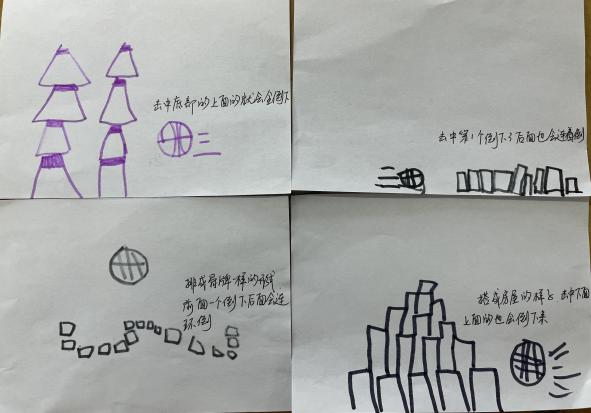 击中底部的上面的就会全倒下
击中第1个倒下了后面也会连着倒
排成骨牌一样的形线
前面一个倒下后面会连
环倒
搭成房屋的样子 击中下面
上面的也会倒下来